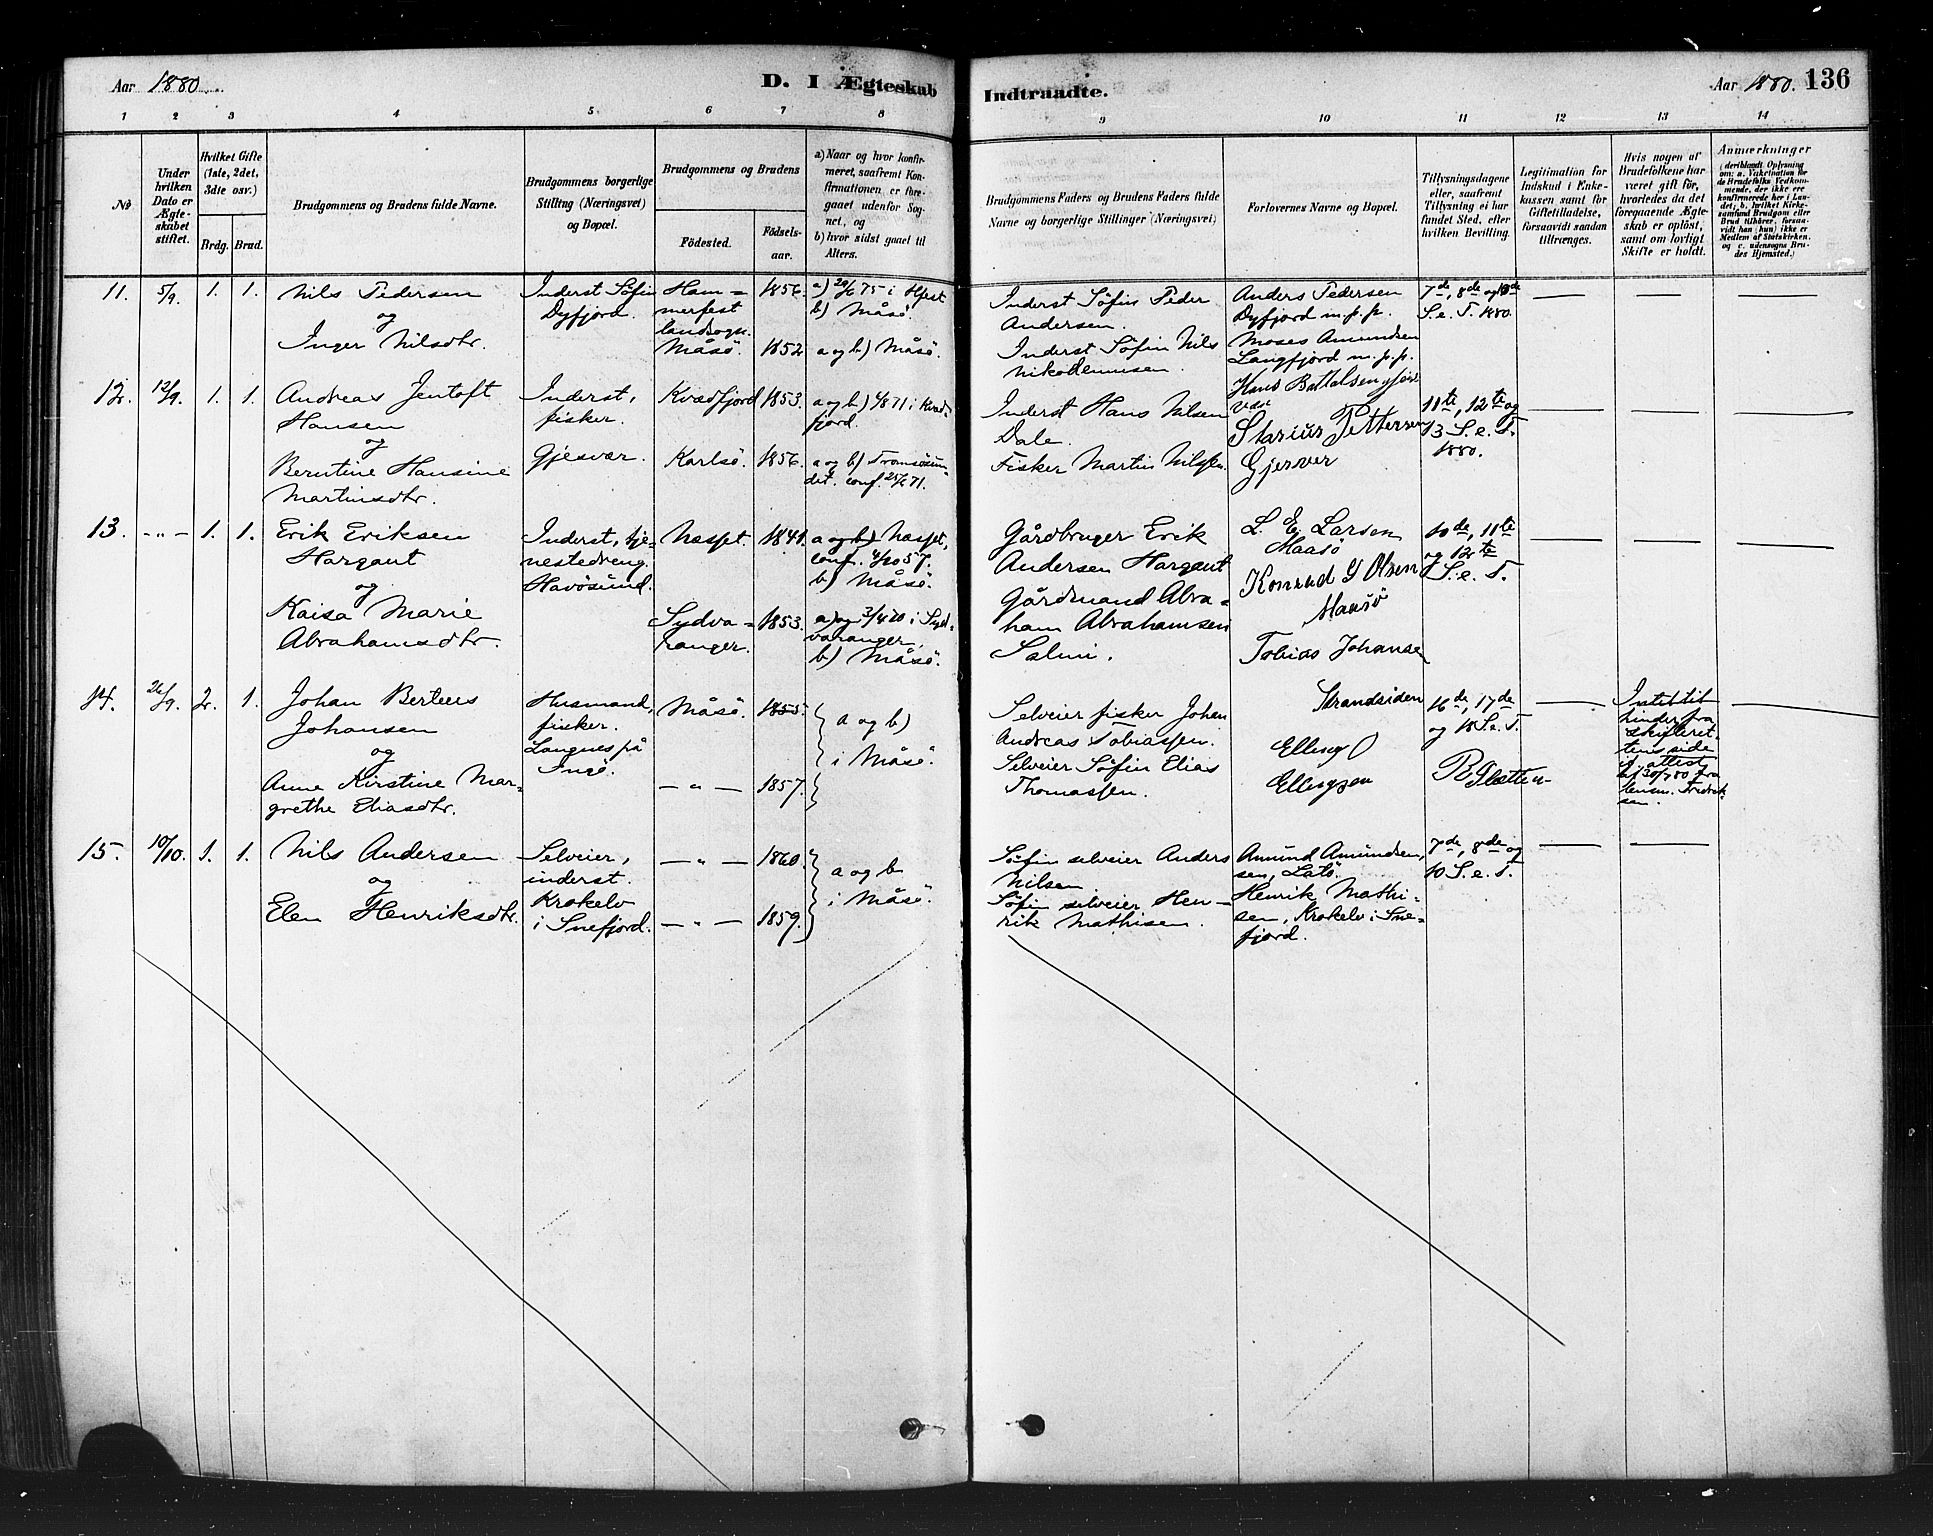 Aar 1880.
D. I Ægteskab
Indtraadte.
Aar 1880. 136
1 2 3 4 5 6 7 8 9 10 11 12 13 14
No
Under
hvilken
Dato er
Ægte-
skabet
stiftet.
Hvilket Gifte
(1ste, 2det,
3die osv.)
Brdg. Brud.
Brudgommens og Brudens fulde Navne.
Brudgommens borgerlige
Stilling (Næringsvei)
og Bopæl.
Brudgommens og Brudens
Födested.
Födsels-
aar.
a) Naar og hvor konfir-
meret, saafremt Kon-
firmationen er fore-
gaaet udenfor Sog-
net, og
b) hvor sidst gaaet til
Alters.
Brudgommens Faders og Brudens Faders fulde
Navne og borgerlige Stillinger (Næringsvei)
Forlovernes Navne og Bopæl.
Tillysningsdagene
eller, saafremt
Tillysning ei har
fundet Sted, efter
hvilken Bevilling.
Legitimation for
Indskud i Enke-
kassen samt for
Giftetilladelse,
forsaavidt saadan
tiltrænges.
Hvis nogen af
Brudefolkene har
været gift för,
hvorledes da det
foregaaende Ægte-
skab er oplöst,
samt om lovligt
Skifte er holdt.
Anmærkninger
(deriblandt Oplysning
om: a. Vakcination for
de Brudefolks Vedkom-
mende, der ikke ere
konfirmerede her i Lan-
det; b. hvilket Kirke-
samfund Brudgom eller
Brud tilhörer, forsaa-
vidt han (hun) ikke er
Medlem af Statskirken,
og c. udensogns Bru-
des Hjemsted.)
11. 5/9. 1. 1.
Nils Pedersen
og
Inger Nilsdtr.
Inderst Söfin
Dyfjord.
Ham-
merfest
landsogn.
Måsö.
1856.
1852
a) 29/6 75 i Hfest
b) Måsö.
a og b) Måsö.
Inderst Söfin Peder
Andersen.
Inderst Söfin Nils
Nikodemusen.
Anders Pedersen
Dyfjord m.p.p.
Moses Amundsen
Langfjord m.p.p.
7de, 8de og 10de
S.e.T. 1880.
12. 12/9. 1. 1.
Andreas Jentoft
Hansen
og
Berntine Hansine
Martinsdtr.
Inderst,
fisker.
Gjesvær.
Kvædfjord
Karlsö.
1853.
1856.
a og b) 4/8 71 i Kvæd-
fjord.
a og b) Tromsösun-
det. conf. 71.
Inderst Hans Nilsen
Dale.
Fisker Martin Nilssen.
Hans
Pettersen
Gjesver
11te, 12te og
13 S.e.T.
1880.
13. -"- 1. 1.
Erik Eriksen
Hargaut
og
Kaisa Marie
Abrahamsdtr.
Inderst, tje-
nestedreng.
Havösund.
Næsset.
Sydva-
ranger.
1841.
1853.
a og b) Næsset,
conf. 4/10 57.
b) Måsö.
a) og 3/4 70 i Syd-
varanger.
b) Måsö.
Gårdbruger Erik
Andersen Hargaut
Gårdmand Abra-
ham Abrahamsen
Salmi.
L. E. Larsen
Maasö
Konrad G Olsen
Maasö
Tobias Johansen
Strandsiden
10de, 11te
og 12te
S.e.T.
14. 26/9. 2. 1.
Johan Berteus
Johansen
og
Anne Kirstine Mar-
grethe Eliasdtr.
Husmand,
fisker.
Langnes på
Ingö.
Måsö.
-"-
1855.
1857.
a og b)
i Måsö.
Selveier fisker Johan
Andreas Tobiassen.
Selveier Söfin Elias
Thomassen.
Elling O
Ellingsen
16de, 17de
og 18 S.e.T.
Intet til
hinder fra
skifteret-
tens side
if. attest
af 30/7 80 fra
lensm. Fredrik-
sen.
15. 10/10. 1. 1.
Nils Andersen
og
Elen Henriksdtr.
Selveier,
inderst.
Krokelv
i Snefjord.
-"-
-"-
1860.
1859.
a og b
i Måsö.
Söfin selveier Anders
Nilsen
Söfin selveier Hen-
rik Mathisen.
Amund Amundsen,
Henrik Mathi-
sen, Krokelv i Sne-
fjord.
7de, 8de og
10 S.e.T.